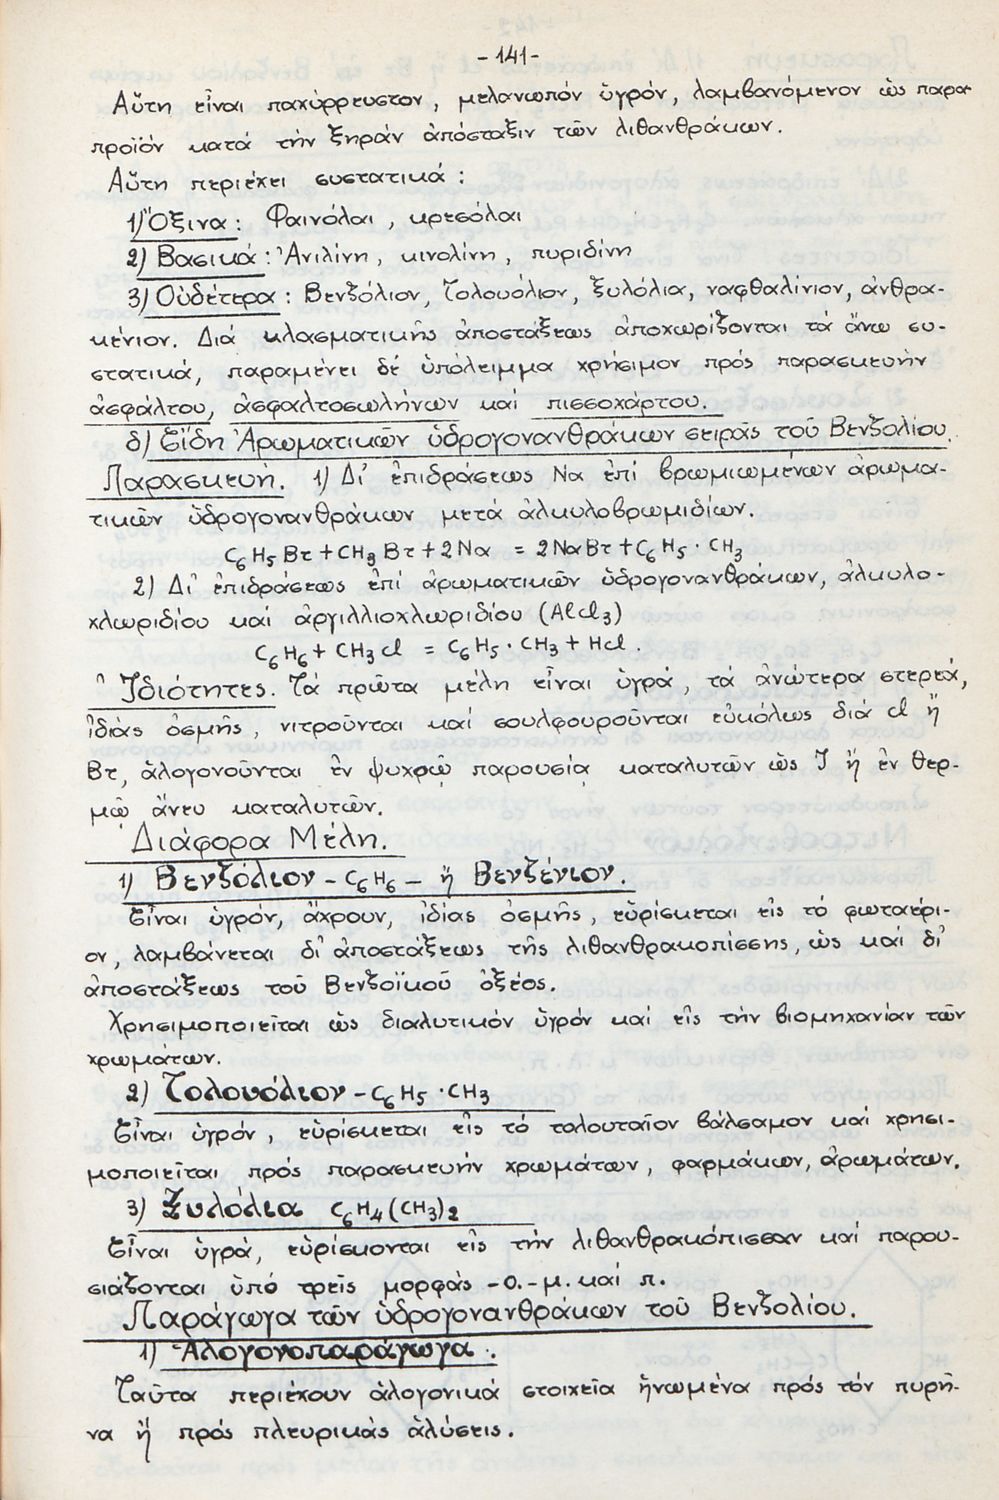 -141-
Αὕτη εἶναι παχύρρευστον, μελανωπόν ὑγρόν, λαμβανόμενον ὡς παρα-
προϊόν κατά τήν ξηράν ἀπόσταξιν τῶν λιθανθράκων.
Αὕτη περιέχει συστατικά :
1) Ὄξινα : Φαινόλαι , κρεσόλαι
2) Βασικά : Ἀνιλίνη , κινολίνη , πυριδίνη
3) Οὐδέτερα : Βενζόλιον, Τολουόλιον, ξυλόλια, ναφθαλίνιον, ἀνθρα-
κένιον. Διά κλασματικῆς ἀποστάξεως ἀποχωρίζονται τά ἄνω συ-
στατικά, παραμένει δέ ὑπόλειμμα χρήσιμον πρός παρασκευήν
ἀσφάλτου, ἀσφαλτοσωλήνων καί πισσοχάρτου.
δ) Εἴδη Ἀρωματικῶν ὑδρογονανθράκων σειρᾶς τοῦ Βενζολίου.
Παρασκευή. 1) Δι' ἐπιδράσεως Na ἐπί βρωμιωμένων ἀρωμα-
τικῶν ὑδρογονανθράκων μετά ἀλκυλοβρωμιδίων.
C₆H₅Br + CH₃Br + 2Na = 2NaBr + C₆H₅·CH₃
2) Δι' ἐπιδράσεως ἐπί ἀρωματικῶν ὑδρογονανθράκων, ἀλκυλο-
χλωριδίου καί ἀργιλλιοχλωριδίου (AlCl₃)
C₆H₆ + CH₃Cl = C₆H₅·CH₃ + HCl .
Ἰδιότητες. Τά πρῶτα μέλη εἶναι ὑγρά, τά ἀνώτερα στερεά,
ἰδίας ὀσμῆς, νιτροῦνται καί σουλφουροῦνται εὐκόλως διά Cl ἤ
Br, ἀλογονοῦνται ἐν ψυχρῷ παρουσίᾳ καταλυτῶν ὡς J ἤ ἐν θερ-
μῷ ἄνευ καταλυτῶν.
Διάφορα Μέλη.
1) Βενζόλιον - C₆H₆ - ἤ Βενζένιον.
Εἶναι ὑγρόν, ἄχρουν, ἰδίας ὀσμῆς, εὑρίσκεται εἰς τό φωταέρι-
ον, λαμβάνεται δι' ἀποστάξεως τῆς λιθανθρακοπίσσης, ὡς καί δι'
ἀποστάξεως τοῦ Βενζοϊκοῦ ὀξέος.
Χρησιμοποιεῖται ὡς διαλυτικόν ὑγρόν καί εἰς τήν βιομηχανίαν τῶν
χρωμάτων.
2) Τολουόλιον - C₆H₅·CH₃
Εἶναι ὑγρόν, εὑρίσκεται εἰς τό τολουταῖον βάλσαμον καί χρησι-
μοποιεῖται πρός παρασκευήν χρωμάτων, φαρμάκων, ἀρωμάτων.
3) Ξυλόλια C₆H₄(CH₃)₂
Εἶναι ὑγρά, εὑρίσκονται εἰς τήν λιθανθρακόπισσαν καί παρου-
σιάζονται ὑπό τρεῖς μορφάς -ο.-μ. καί π.
Παράγωγα τῶν ὑδρογονανθράκων τοῦ Βενζολίου.
1) Ἀλογονοπαράγωγα .
Ταῦτα περιέχουν ἀλογονικά στοιχεῖα ἡνωμένα πρός τόν πυρῆ-
να ἤ πρός πλευρικάς ἀλύσεις.